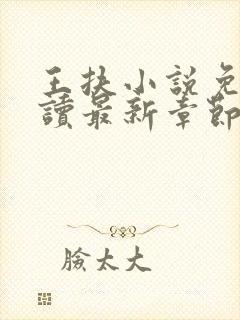 王扶小說免
讀最新章節
臉太大